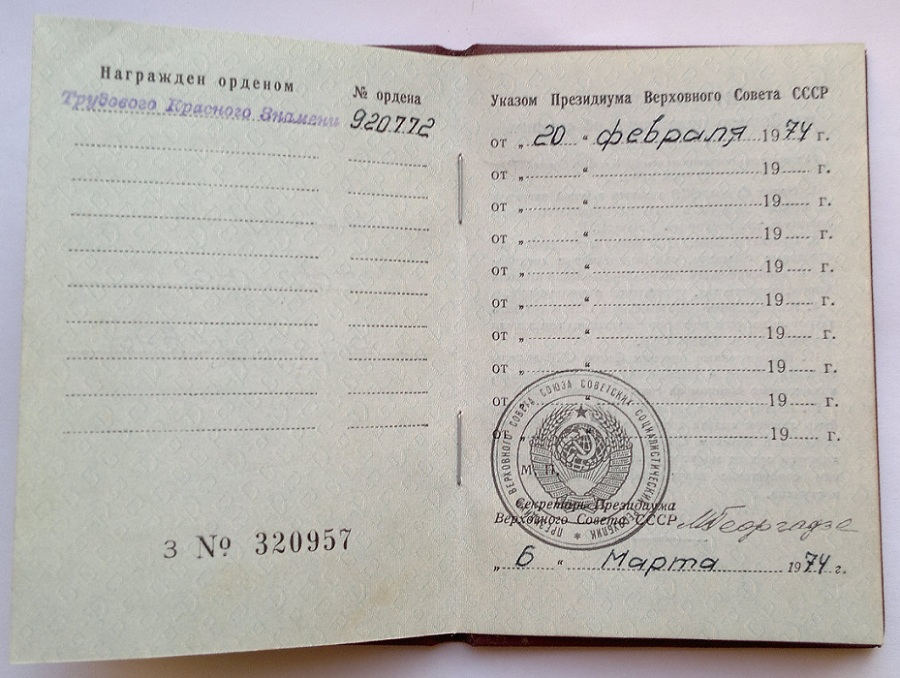 Награжден орденом
№ ордена
Трудового Красного Знамени
920772
З № 320957
Указом Президиума Верховного Совета СССР
от „ 20 “ февраля 1974 г.
от „ “ 19 г.
от „ “ 19 г.
от „ “ 19 г.
от „ “ 19 г.
от „ “ 19 г.
от „ “ 19 г.
от „ “ 19 г.
от „ “ 19 г.
от „ “ 19 г.
ПРЕЗИДИУМ ВЕРХОВНОГО СОВЕТА СОЮЗА СОВЕТСКИХ СОЦИАЛИСТИЧЕСКИХ РЕСПУБЛИК
М. П.
Секретарь Президиума
Верховного Совета СССР МГеоргадзе
„ 6 “ Марта 1974 г.